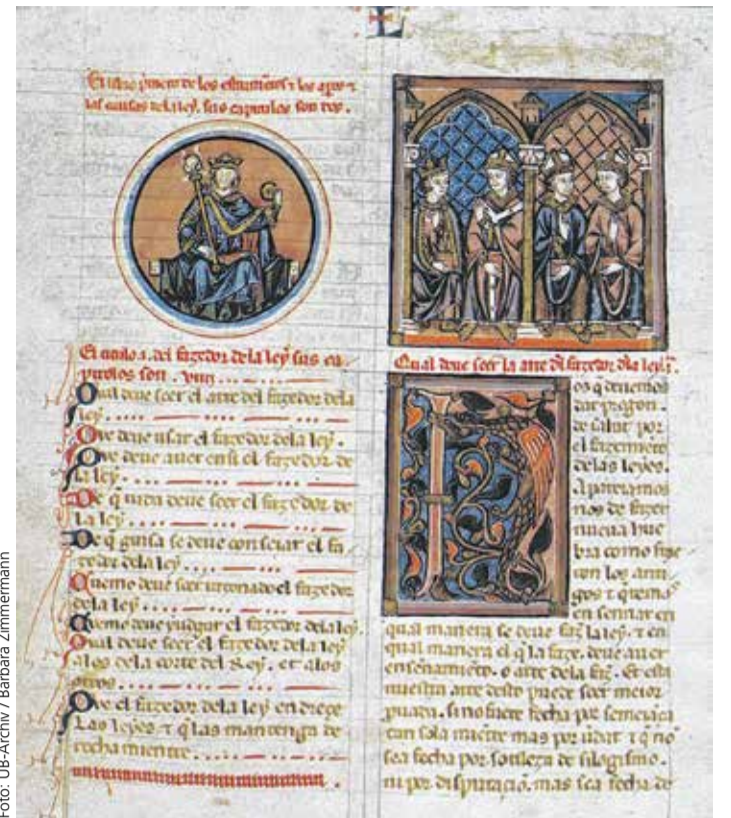 El libro primero de los estrumentos τ los
las cuisas dela ley. sus capitolos son dos.
El titolo .1. del fazedor dela ley sus ca-
pitolos son . VIIII
Qual deue seer el arte del fazedor dela
ley.
Que deue usar el fazedor dela ley.
Que deue auer en si el fazedor de
la ley.
De q̄ uida deue seer el fazedor de
La ley
De q̄ guisa se deue conseiar el fa
zedor dela ley
Quemo deue seer el fazedor
dela ley
Quemo deue yudgar el fazedor dela ley.
Qual deue seer el fazedor dela ley
alos dela corte del Rey. et alos
otros.
Que el fazedor dela ley en drece
Las leyes τ q̄ las mantenga de
recha miente
Qual deue seer la arte dl̄ fazedor dla ley. I.
os q̄ deuemos
dar
de salut por
el fazemiēto
delas leyes.
nos de fazer
nueua hue
bra como fize
ron los anti
gos τ quema
en sennar en
qual manera se deue faz̄ la ley. τ en
qual manera el q̄ la faze. deue auer
enseñamiēto. o arte dela faz̄. Et esta
nuestra arte desto puede seer meior
puada. si no fuere fecha por semeiāça
tan sola miētre mas por uidat τ q̄ nō
sea fecha por sotileza de silogismo.
ni por disputaciō. mas sea fecha de
Foto: UB-Archiv / Barbara Zimmermann